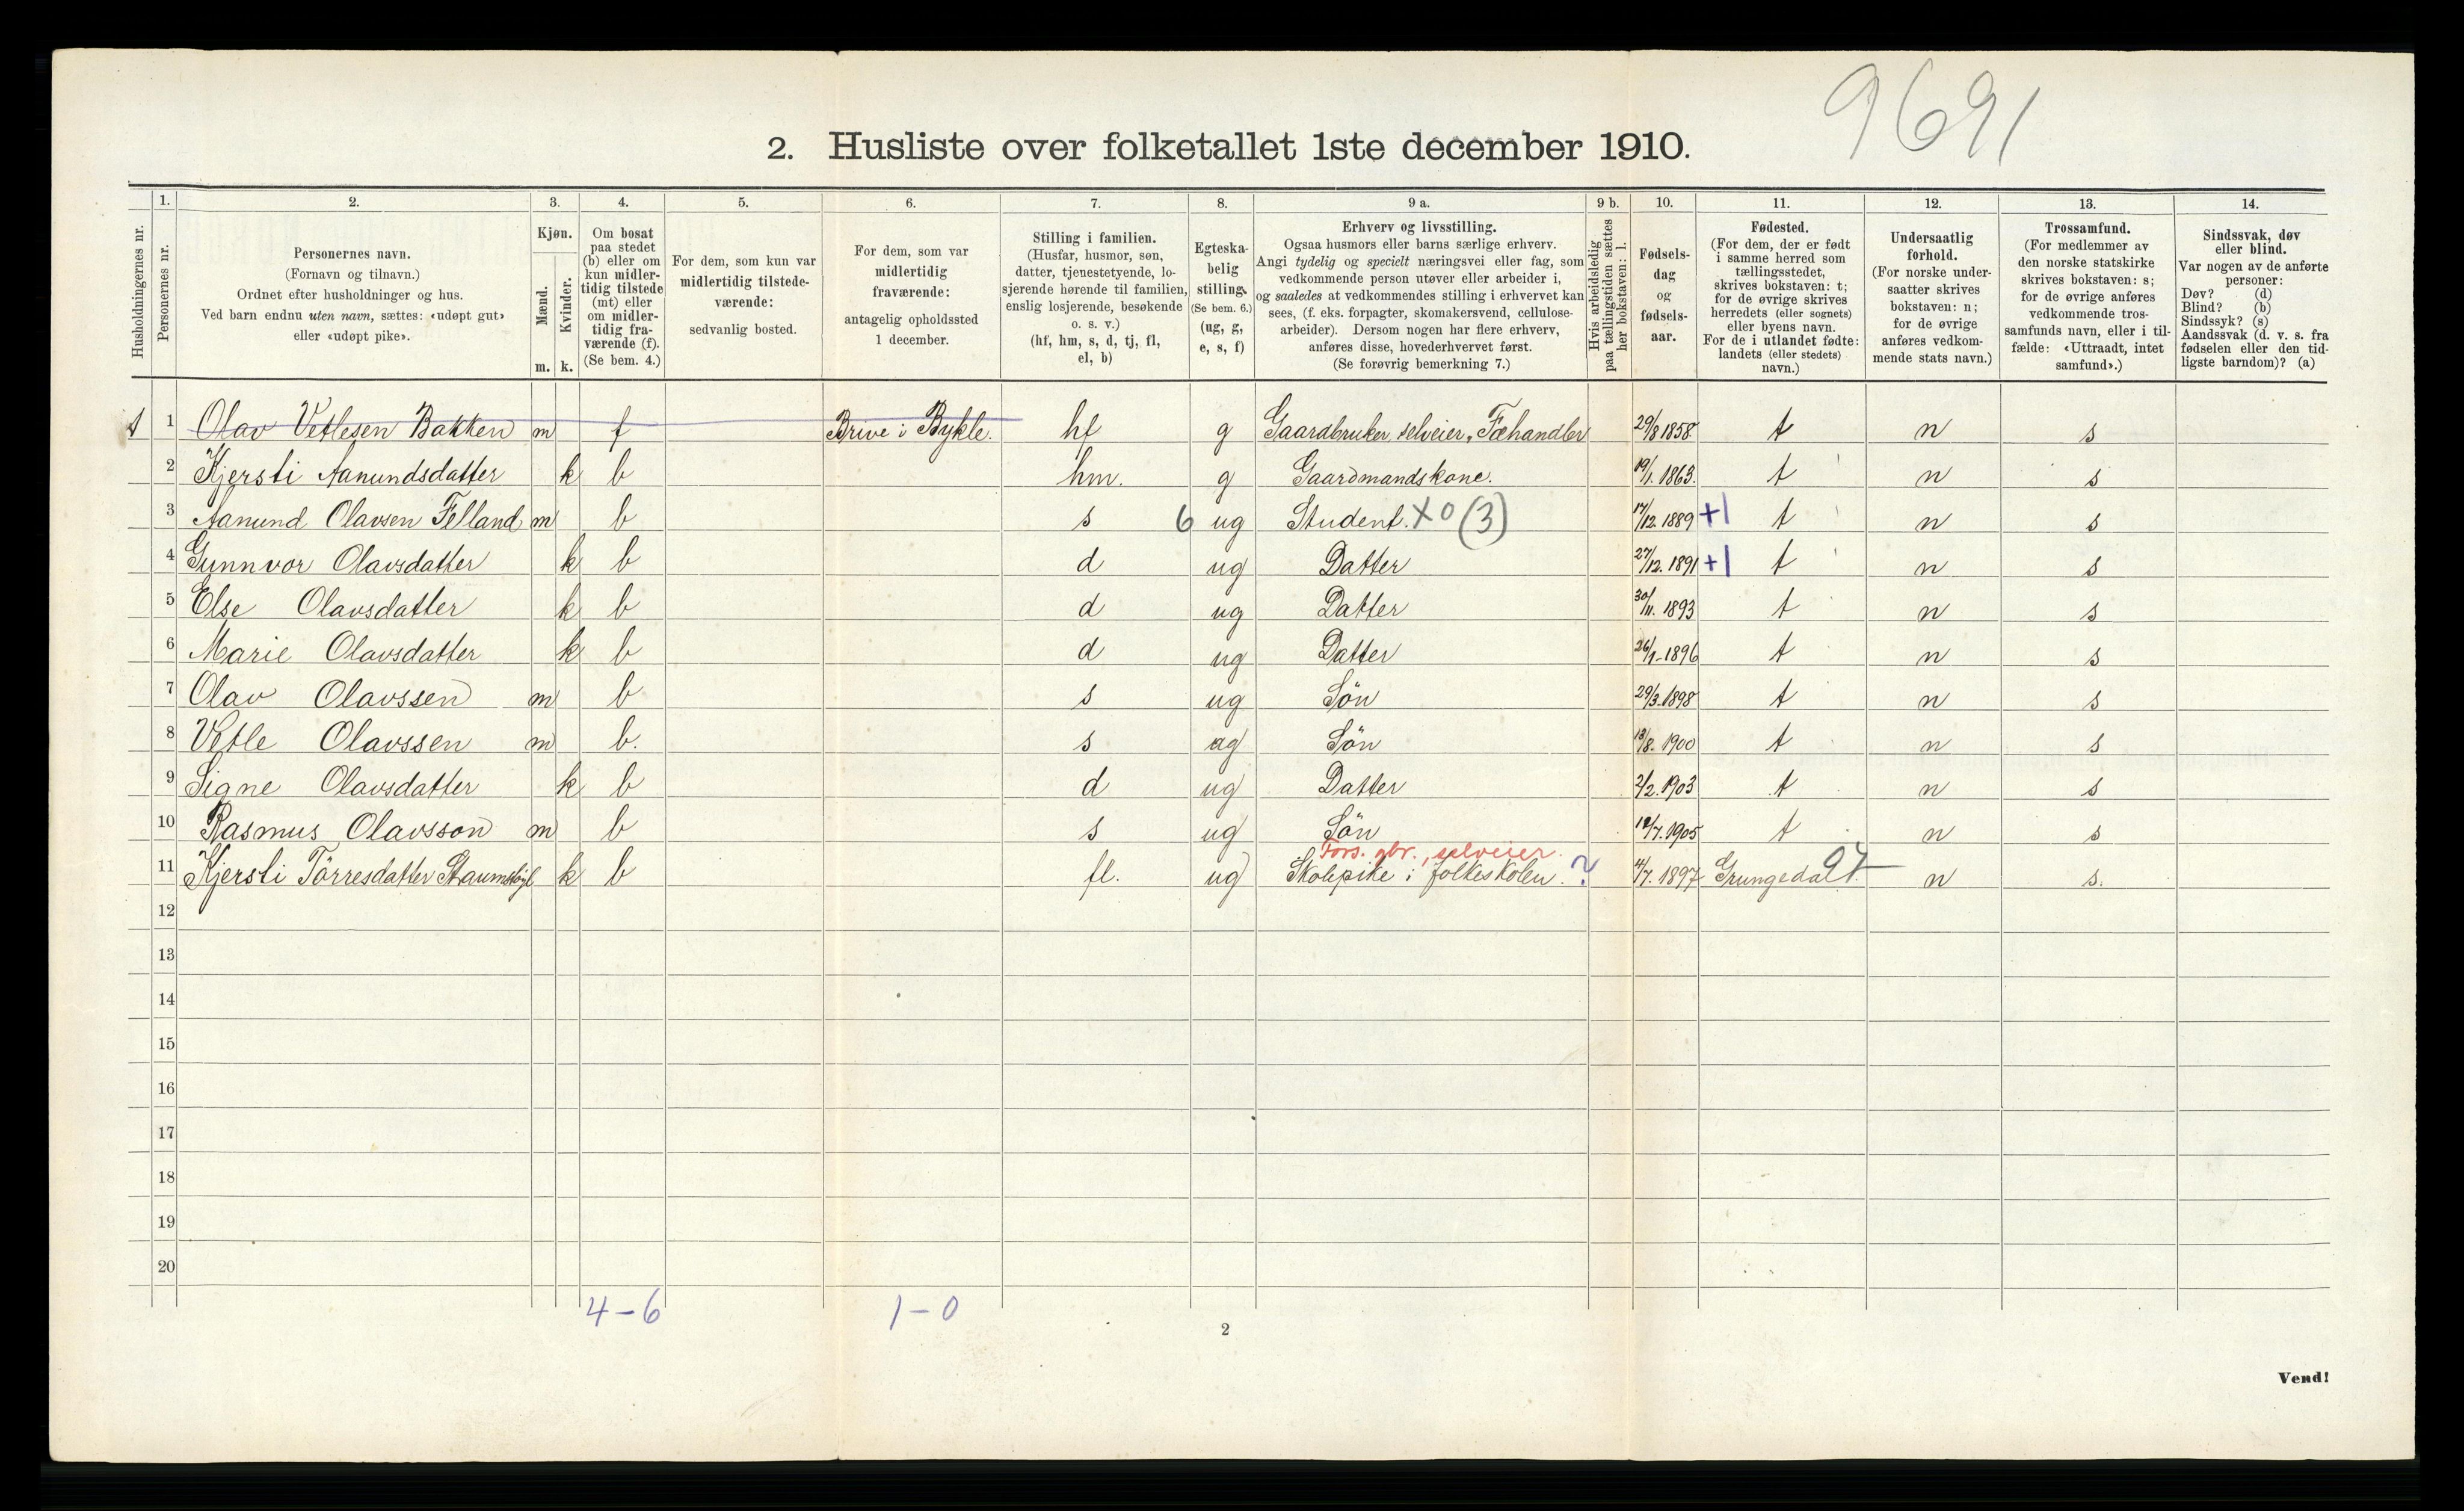 9691
2. Husliste over folketallet 1ste december 1910.
Husholdningernes nr.
1. Personernes nr.
2. Personernes navn.
(Fornavn og tilnavn.)
Ordnet efter husholdninger og hus.
Ved barn endnu uten navn, sættes: «udøpt gut»
eller «udøpt pike».
3. Kjøn.
Mænd. m.
Kvinder. k.
4. Om bosat
paa stedet
(b) eller om
kun midler-
tidig tilstede
(mt) eller
om midler-
tidig fra-
værende (f).
(Se bem. 4.)
5. For dem, som kun var
midlertidig tilstede-
værende:
sedvanlig bosted.
6. For dem, som var
midlertidig
fraværende:
antagelig opholdssted
1 december.
7. Stilling i familien.
(Husfar, husmor, søn,
datter, tjenestetyende, lo-
sjerende hørende til familien,
enslig losjerende, besøkende
o. s. v.)
(hf, hm, s, d, tj, fl,
el, b)
8. Egteska-
belig
stilling.
(Se bem. 6.)
(ug, g,
e, s, f)
9 a. Erhverv og livsstilling.
Ogsaa husmors eller barns særlige erhverv.
Angi tydelig og specielt næringsvei eller fag, som
vedkommende person utøver eller arbeider i,
og saaledes at vedkommendes stilling i erhvervet kan
sees, (f. eks. forpagter, skomakersvend, cellulose-
arbeider). Dersom nogen har flere erhverv,
anføres disse, hovederhvervet først.
(Se forøvrig bemerkning 7.)
9 b. Hvis arbeidsledig
paa tællingstiden sættes
her bokstaven: l.
10. Fødsels-
dag
og
fødsels-
aar.
11. Fødested.
(For dem, der er født
i samme herred som
tællingsstedet,
skrives bokstaven: t;
for de øvrige skrives
herredets (eller sognets)
eller byens navn.
For de i utlandet fødte:
landets (eller stedets)
navn.)
12. Undersaatlig
forhold.
(For norske under-
saatter skrives
bokstaven: n;
for de øvrige
anføres vedkom-
mende stats navn.)
13. Trossamfund.
(For medlemmer av
den norske statskirke
skrives bokstaven: s;
for de øvrige anføres
vedkommende tros-
samfunds navn, eller i til-
fælde: «Uttraadt, intet
samfund».)
14. Sindssvak, døv
eller blind.
Var nogen av de anførte
personer:
Døv? (d)
Blind? (b)
Sindssyk? (s)
Aandssvak (d. v. s. fra
fødselen eller den tid-
ligste barndom)? (a)
1 1 Olav Vetlesen Bakken m f Brive i Bykle. hf g Gaardbruker, selveier, Fæhandler 29/8 1858. t n s
2 Kjersti Aanundsdatter k b hm. g Gaardmandskone. 19/1. 1863. t n s
3 Aanund Olavsen Felland m b s 6 ug Student. x0 (3) 17/12. 1889 +1 t n s
4 Gunnvor Olavsdatter k b d ug Datter 27/12. 1891 +1 t n s
5 Else Olavsdatter k b d ug Datter 30/11. 1893 t n s
6 Marie Olavsdatter k b d ug Datter 26/1-1896 t n s
7 Olav Olavssen m b s ug Sön 29/3-1898 t n s
8 Vetle Olavssen m b. s ug Sön 18/8. 1900 t n s
9 Signe Olavsdatter k b d ug Datter 2/2. 1903 t n s
10 Rasmus Olavsson m b s ug Sön t n s
Fors. gbr., selveier.
11 Kjersti Törresdatter k b fl. ug Skolepike i folkeskolen. ? 4/7. 1897 Grungedal. n s.
12
13
14
15
16
17
18
19
20
4-6 1-0
2
Vend!